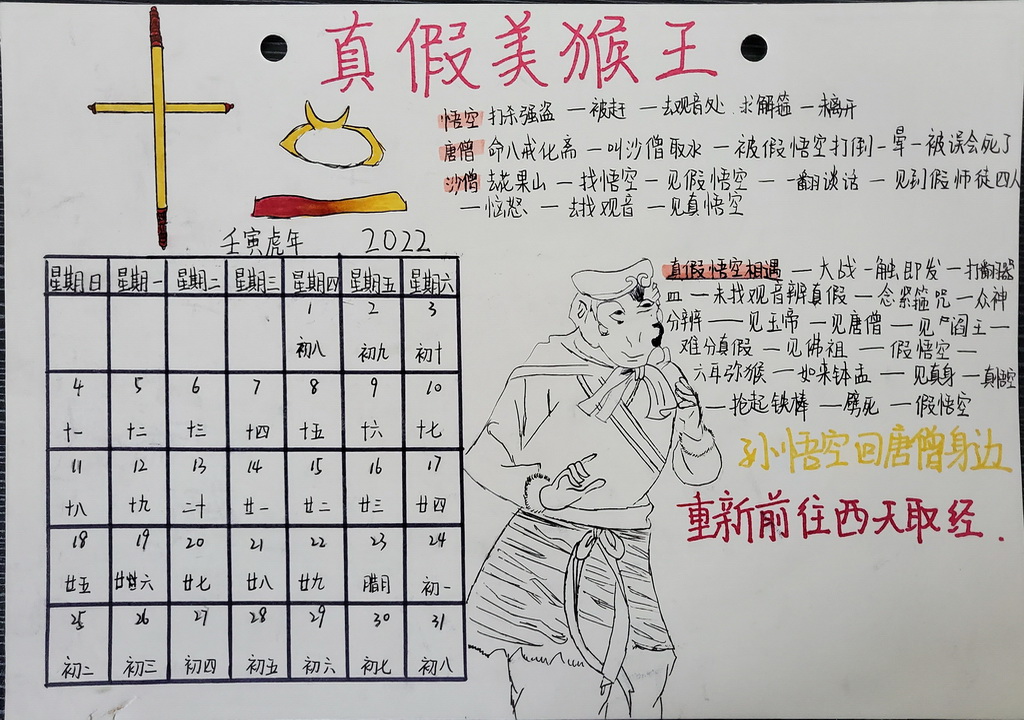 真假美猴王
悟空 打杀强盗 一被赶 一去观音处 求解箍 一未离开
唐僧 命八戒化斋 一叫沙僧取水 一被假悟空打倒一晕一被误会死了
沙僧 去花果山 一找悟空一见假悟空 一一翻谈话 一见到假师徒四人
一恼怒 一去找观音 一见真悟空
壬寅虎年 2022
星期日 星期一 星期二 星期三 星期四 星期五 星期六
1 2 3
初八 初九 初十
4 5 6 7 8 9 10
十一 十二 十三 十四 十五 十六 十七
11 12 13 14 15 16 17
十八 十九 二十 廿一 廿二 廿三 廿四
18 19 20 21 22 23 24
廿五 廿六 廿七 廿八 廿九 腊月 初一
25 26 27 28 29 30 31
初二 初三 初四 初五 初六 初七 初八
真假悟空相遇 一大战一触即发一打翻器
皿 一未找观音辨真假 一念紧箍咒一众神
分辨 一一见玉帝 一见唐僧 一见阎王一
难分真假 一见佛祖 一假悟空一
六耳弥猴 一如来钵盂 一见真身 一真悟空
一抢起铁棒 一劈死 一假悟空
孙悟空回唐僧身边
重新前往西天取经.